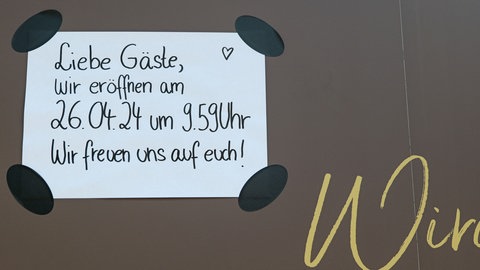 Liebe Gäste,
wir eröffnen am
26.04.24 um 9.59Uhr
Wir freuen uns auf euch!